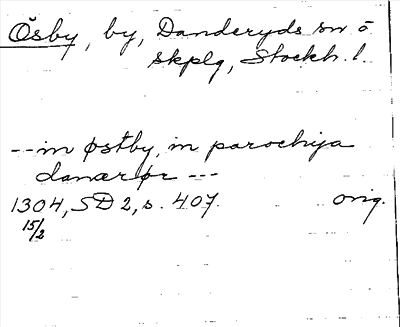 Ösby, by, Danderyds sn o
skplg, Stockh. l.
-- in østby, in parochija
danærør ---
1304, SD 2, s. 407. orig.
15/2